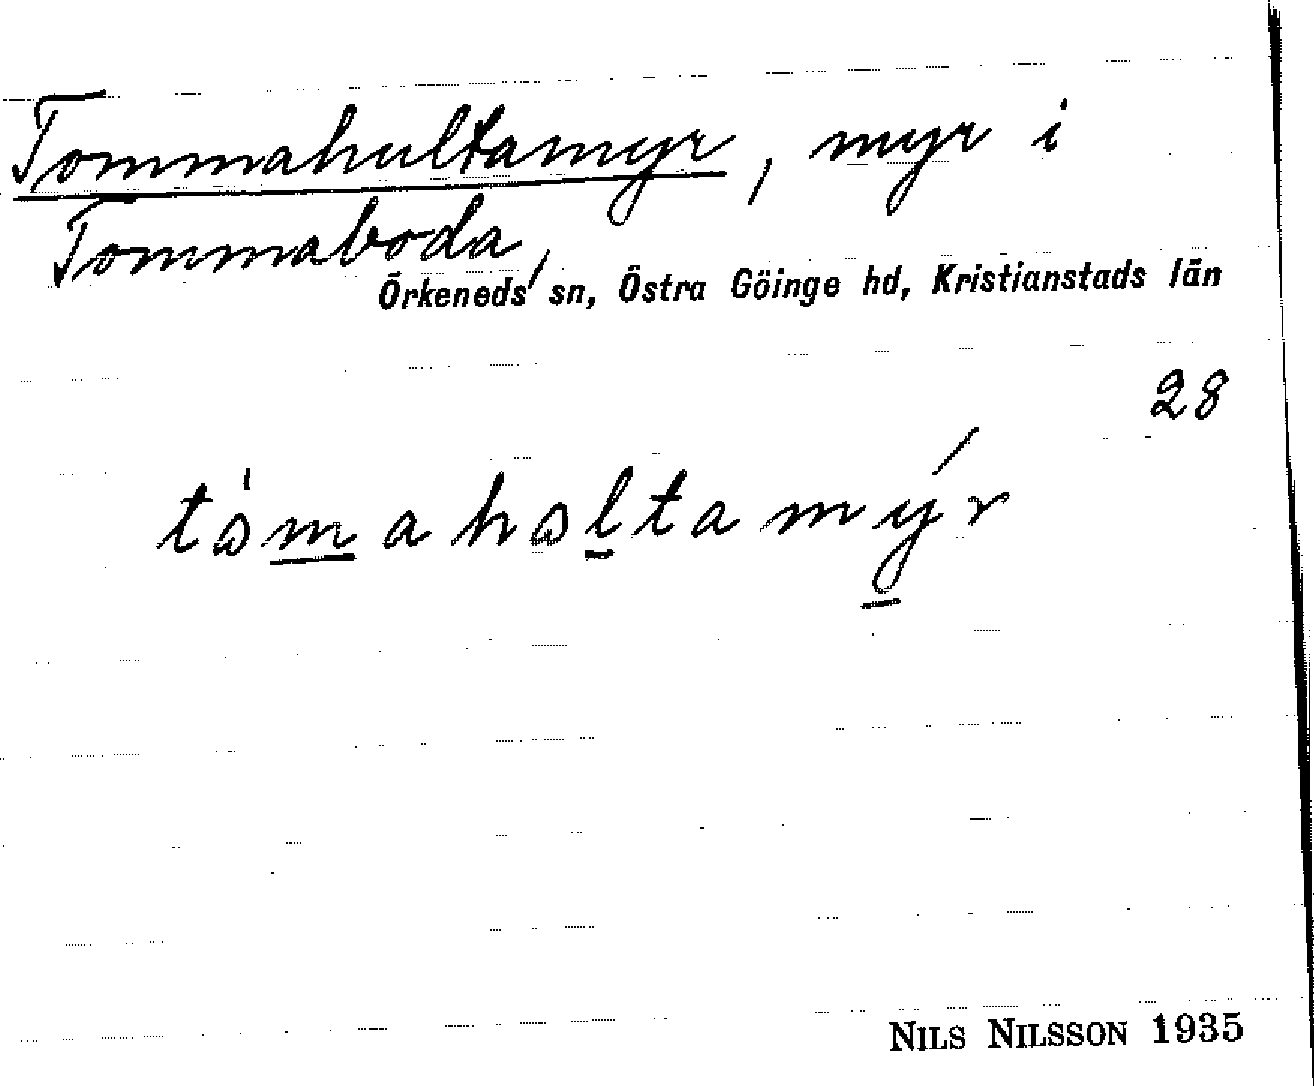 Tommahultamyr, myr i
Tommaboda,
Örkeneds sn, Östra Göinge hd, Kristianstads län
28
tòmahɷltamýr
NILS NILSSON 1935